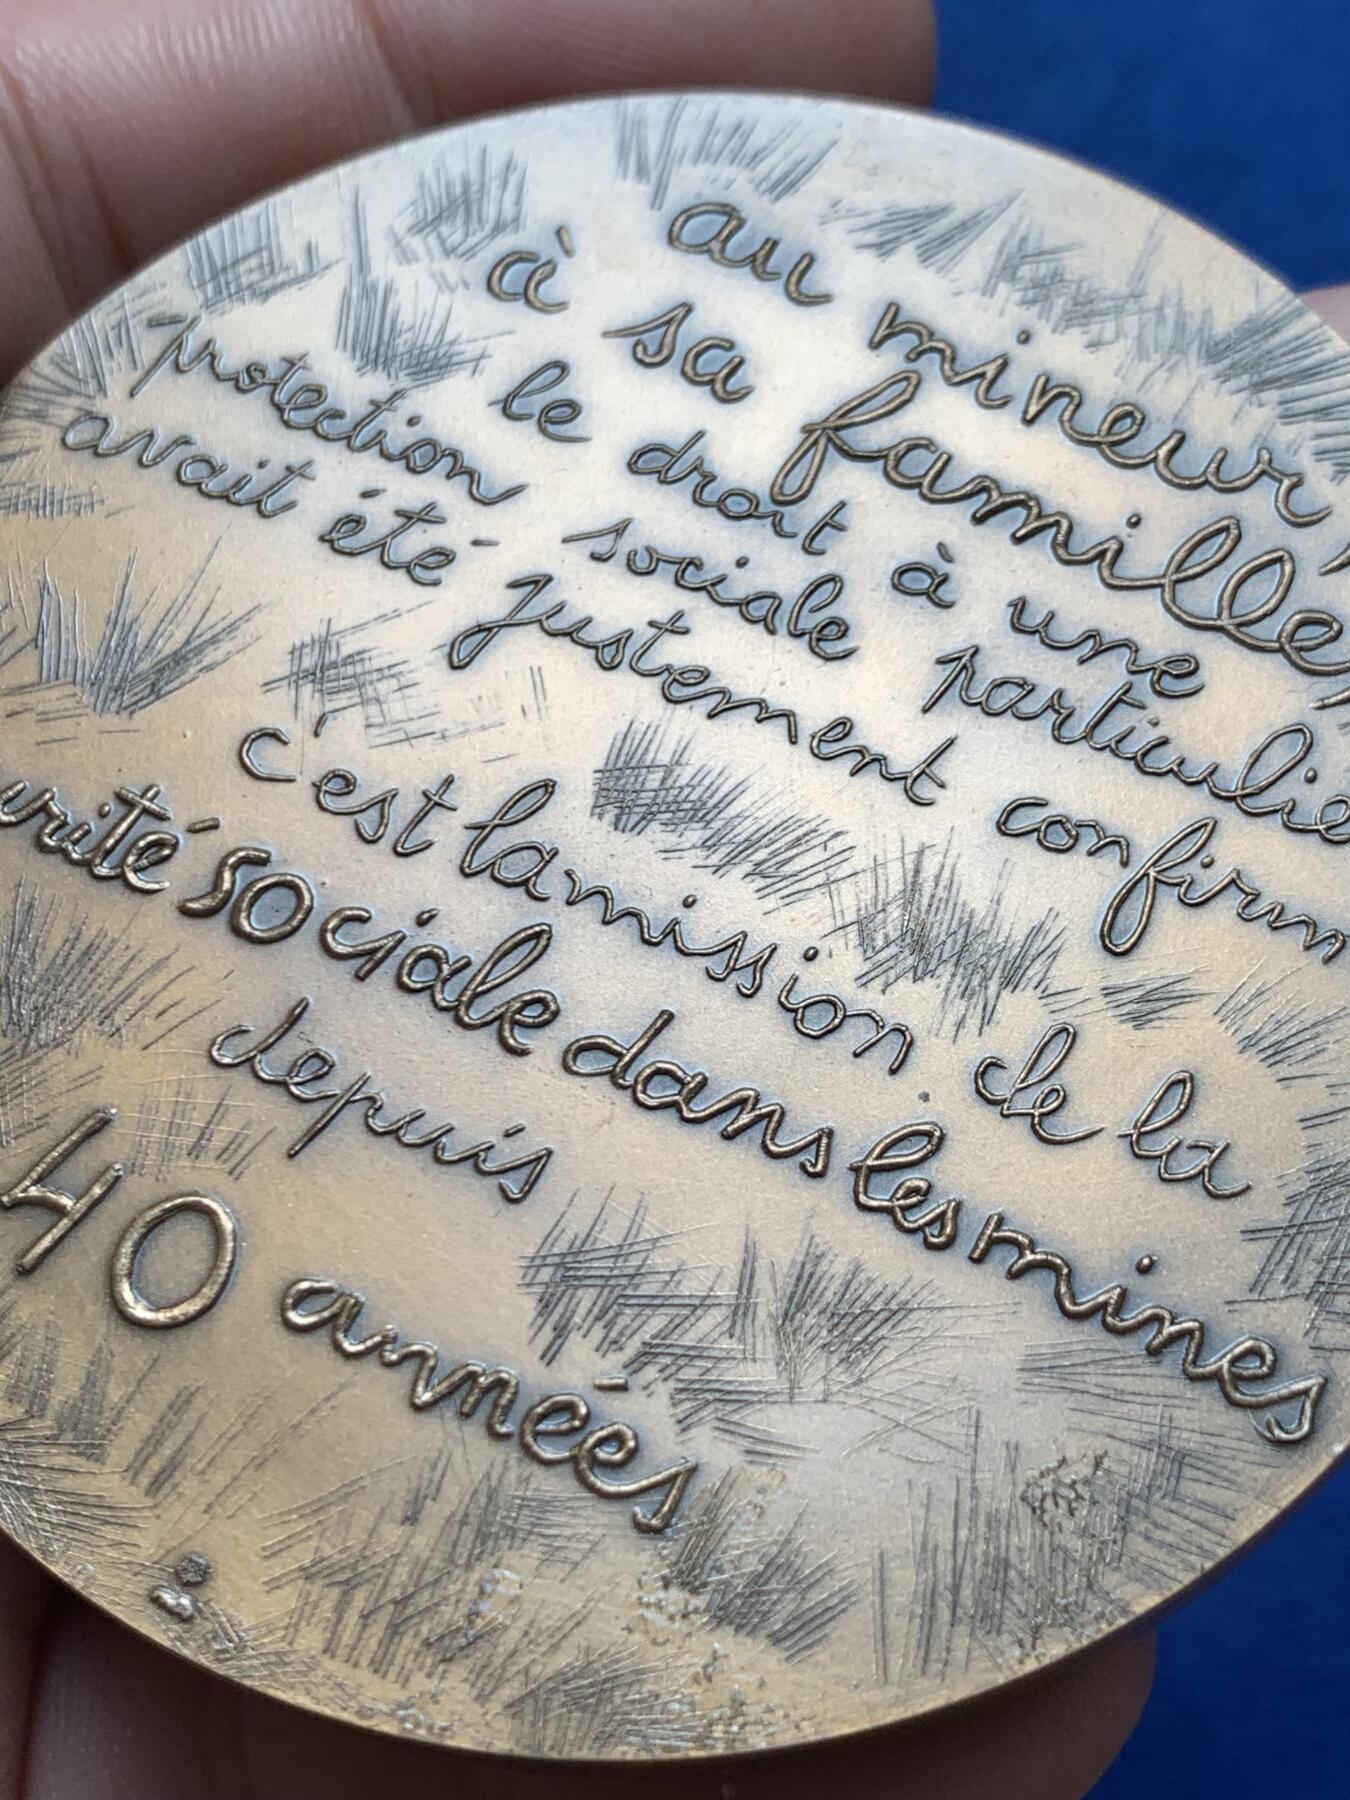 au mineur,
à sa famille,
le droit à une
protection sociale particuliè
avait été justement confirm
c'est la mission de la
urité sociale dans les mines
depuis
40 années